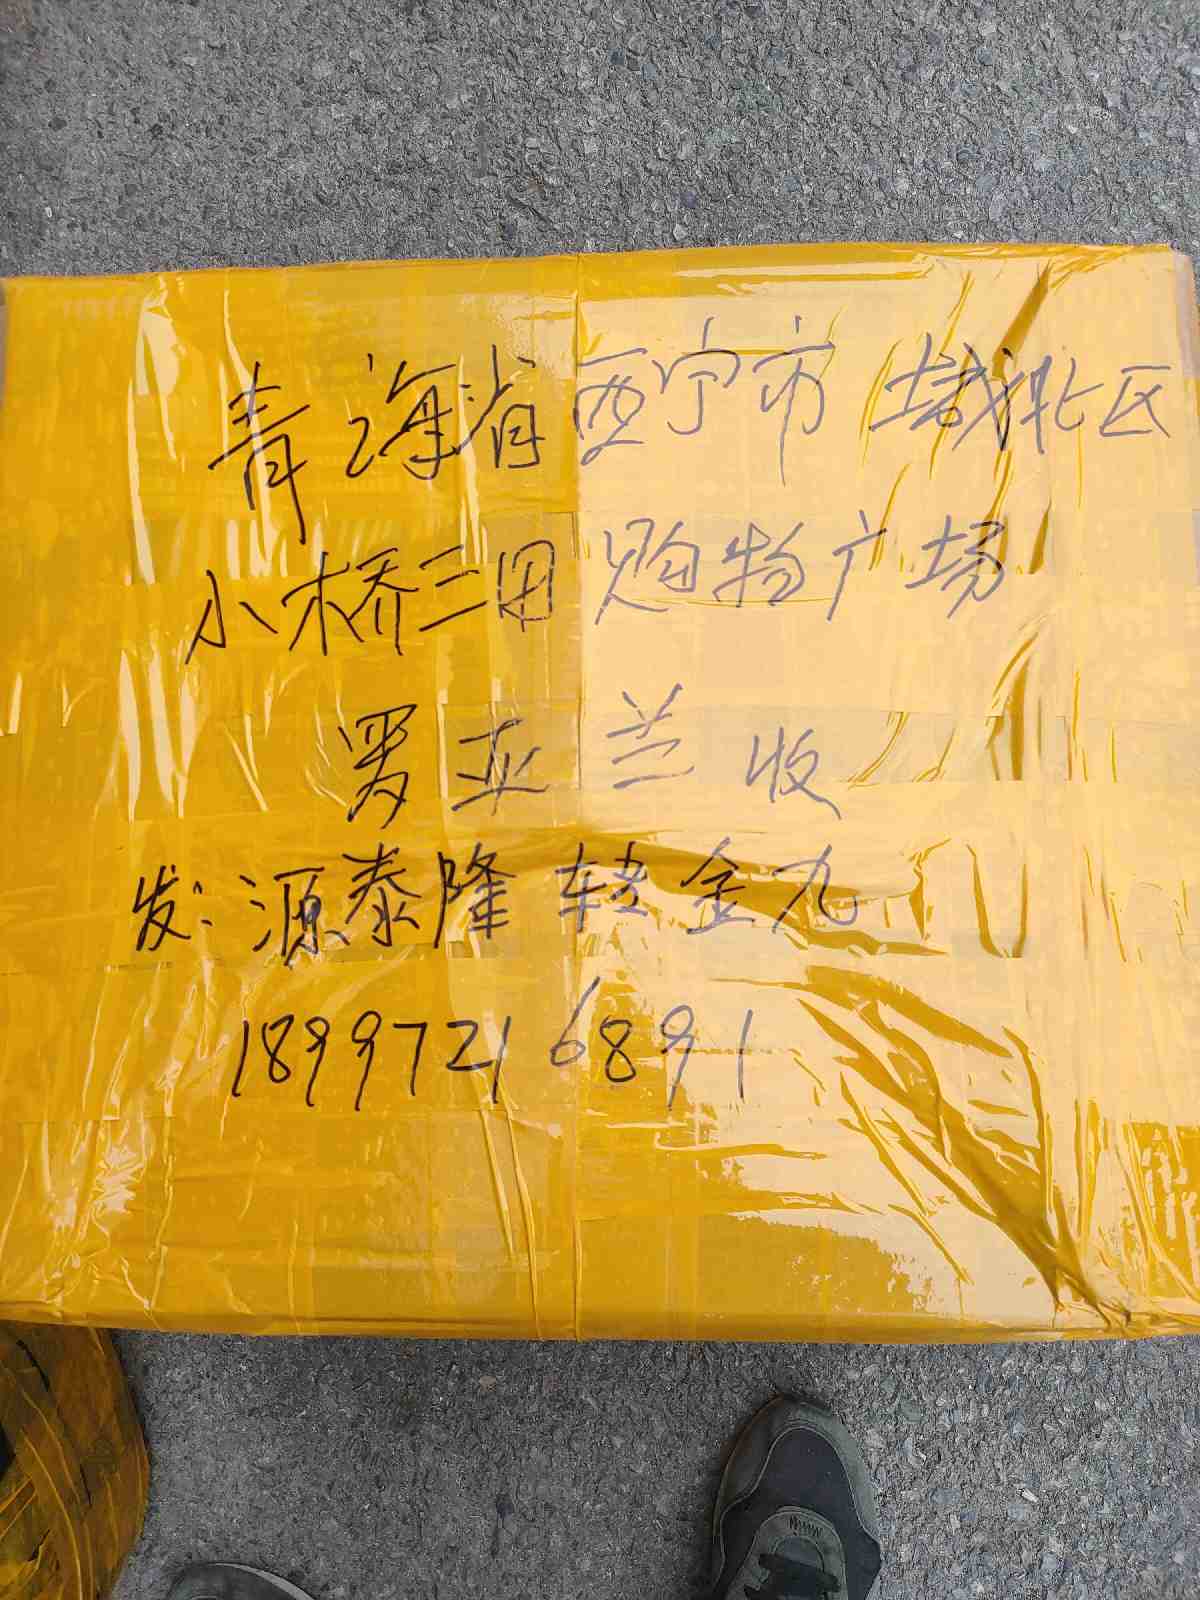 青海省西宁市城北区
小桥三田购物广场
罗亚兰收
发:源泰隆转金九
18997216891